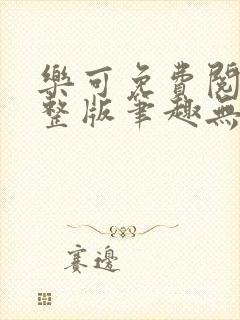 樂可免費閱
整版筆趣無
賽邊